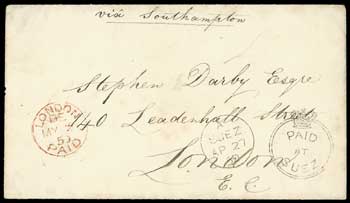 via Southampton
Stephen Darby Esqre
140 Leadenhall Street
London
E. C.
LONDON
MY
PAID
SUEZ
AP 27
PAID
AT
SUEZ